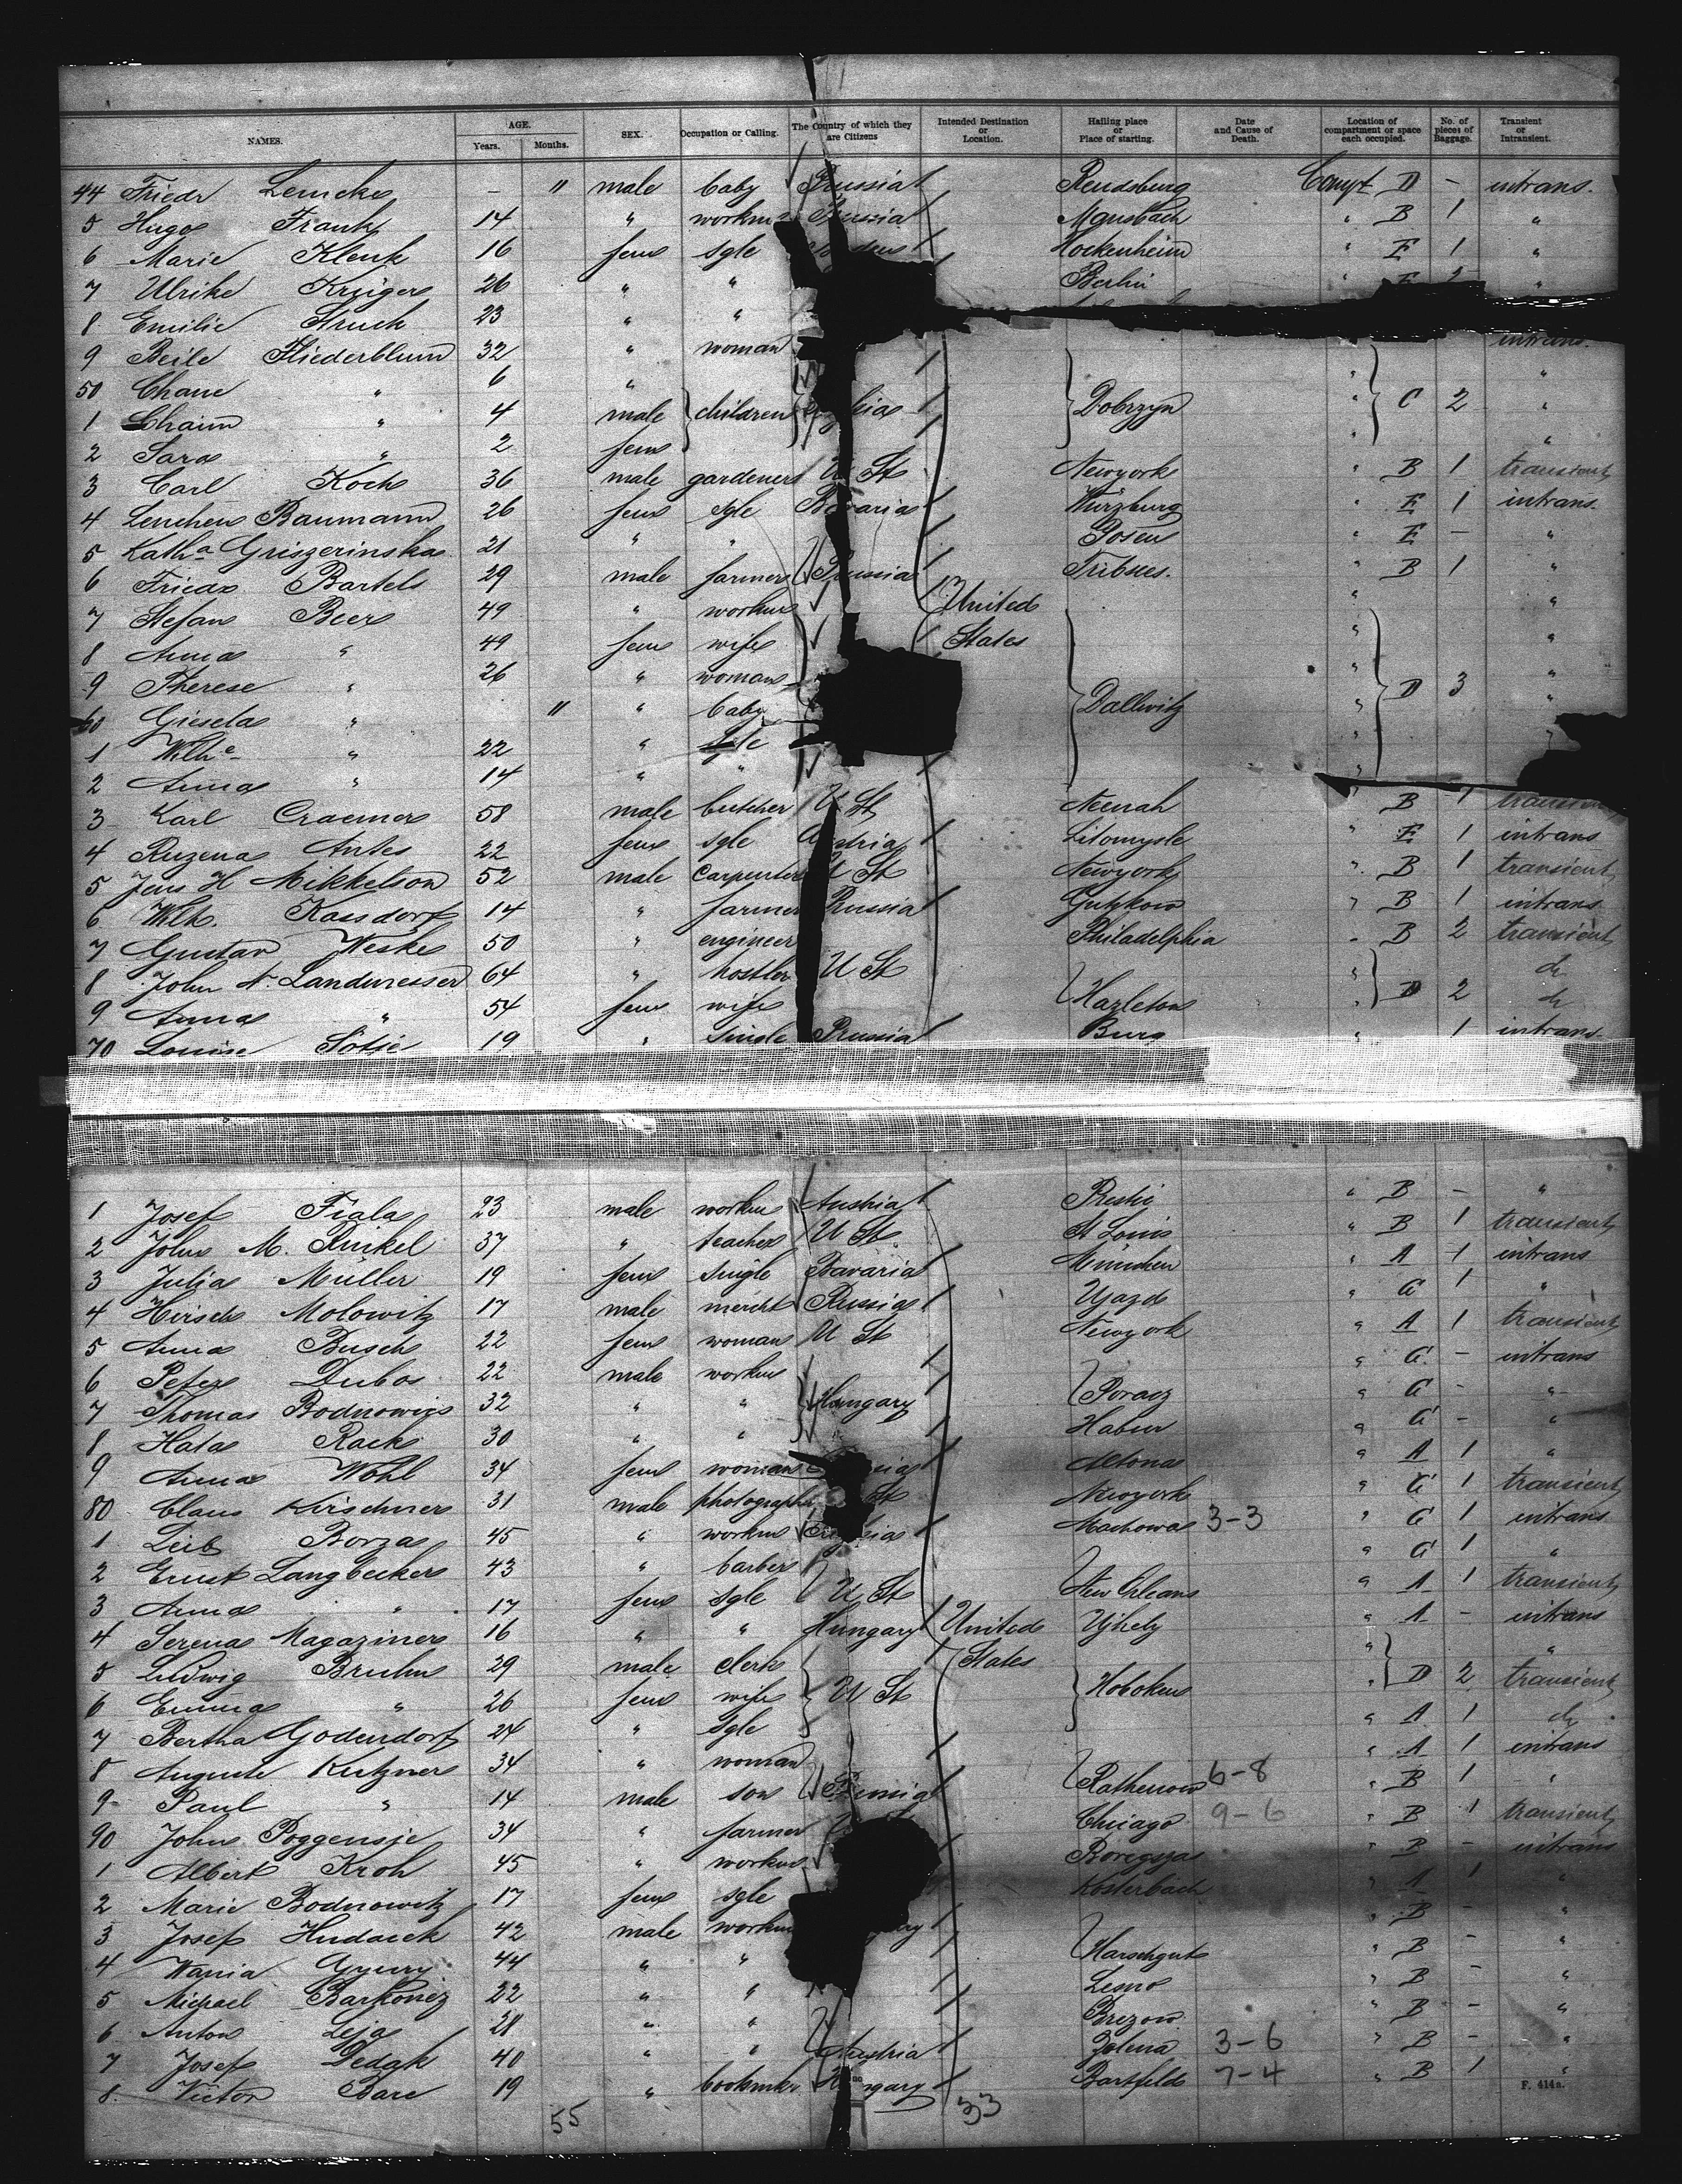 NAMES. AGE. Years. Months. SEX. Occupation or Calling. The Country of which they are Citizens Intended Destination or Location. Hailing place or Place of starting. Date and Cause of Death. Location of compartment or space each occupied. No. of pieces of Baggage. Transient or Intransient.
44 Friedr Lemcke – 11 male baby Prussia Rendsburg Compt D – intrans.
5 Hugo Frank 14 " workm Prussia Mansbach " B 1 "
6 Marie Klenk 16 fem sgle Hockenheim " E 1 "
7 Ulrike Krüger 26 " " Berlin " E 2 "
8 Emilie Struck 23 " "
9 Beile Fliederblum 32 " woman intrans.
50 Chane " 6 " "
1 Chaim " 4 male children Dobrzyn C 2 "
2 Sara " 2 fem "
3 Carl Koch 36 male gardener U St Newyork " B 1 transient
4 Lenchen Baumann 26 fem sgle Bavaria Würzburg " E 1 intrans.
5 Katha Griszerinska 21 " " Posen " E – "
6 Friedr Bartels 29 male farmer Prussia Tribsees. " B 1 "
7 Stefan Beer 49 " workm United " "
8 Anna " 49 fem wife States " "
9 Therese " 26 " woman Dallwitz " D 3 "
60 Giesela " 11 " baby " "
1 Wilhe " 22 " sgle "
2 Anna " 14 " " "
3 Karl Craemer 58 male butcher U St Neenah " B 1 transient
4 Ruzena Antes 22 fem sgle Austria Litomysle " E 1 intrans
5 Jens H Mikkelson 52 male carpenter U St Newyork " B 1 transient
6 Wilh. Kassdorf 14 " farmer Prussia Gutzkow " B 1 intrans
7 Gustav Weske 50 " engineer Philadelphia " B 2 transient
8 John A. Landmesser 64 " hostler U St " do
9 Anna " 54 fem wife Hazleton " D 2 do
70 Louise Sötje 19 " single Prussia Burg " 1 intrans.
1 Josef Fiala 23 male workm Austria Prestic " B – "
2 John M. Runkel 37 " teacher U St. St Louis " B 1 transient
3 Julia Müller 19 fem single Bavaria München " A 1 intrans
4 Hirsch Molowitz 17 male mercht Russia Ujazd " G 1 "
5 Anna Busch 22 fem woman U St Newyork " A 1 transient
6 Peter Dubos 22 male workm " G – intrans
7 Thomas Bodnowics 32 " " Hungary Poracz " G – "
8 Hata Rack 30 " " Habur " G – "
9 Anna Wohl 34 fem woman Altona " A 1 "
80 Claus Kirschner 31 male photograph St Newyork " G 1 transient
1 Leib Borza 45 " workm Machowa 3–3 " G 1 intrans
2 Ernst Langbecker 43 " barber " G 1 "
3 Anna " 17 fem sgle U St New Orleans " A 1 transient
4 Serena Magaziner 16 " " Hungary United Ujhely " A – intrans
5 Ludwig Bruhn 29 male clerk States " "
6 Emma " 26 fem wife U St Hoboken " D 2 transient
7 Bertha Godendorf 24 " sgle " A 1 do
8 Auguste Kutzner 34 " woman " A 1 intrans
9 Paul " 14 male son Prussia Rathenow 6–8 " B 1 "
90 John Poggensje 34 " farmer Chicago 9–6 " B 1 transient
1 Albert Kroh 45 " workm " B – intrans
2 Marie Bodnowitz 17 fem sgle Kosterbach " A 1 "
3 Josef Hudacek 42 male workm " B – "
4 Wania Gyury 44 " " Harschgut " B – "
5 Michael Barkoniez 22 " " Lesno " B – "
6 Anton Leja 21 " " Brezow " B – "
7 Josef Dedak 40 " " Austria Zolena 3–6 " B – "
8. Victor Bare 19 " bookmkr Hungary Bartfeld 7–4 " B 1 "
F. 414a.
55 33